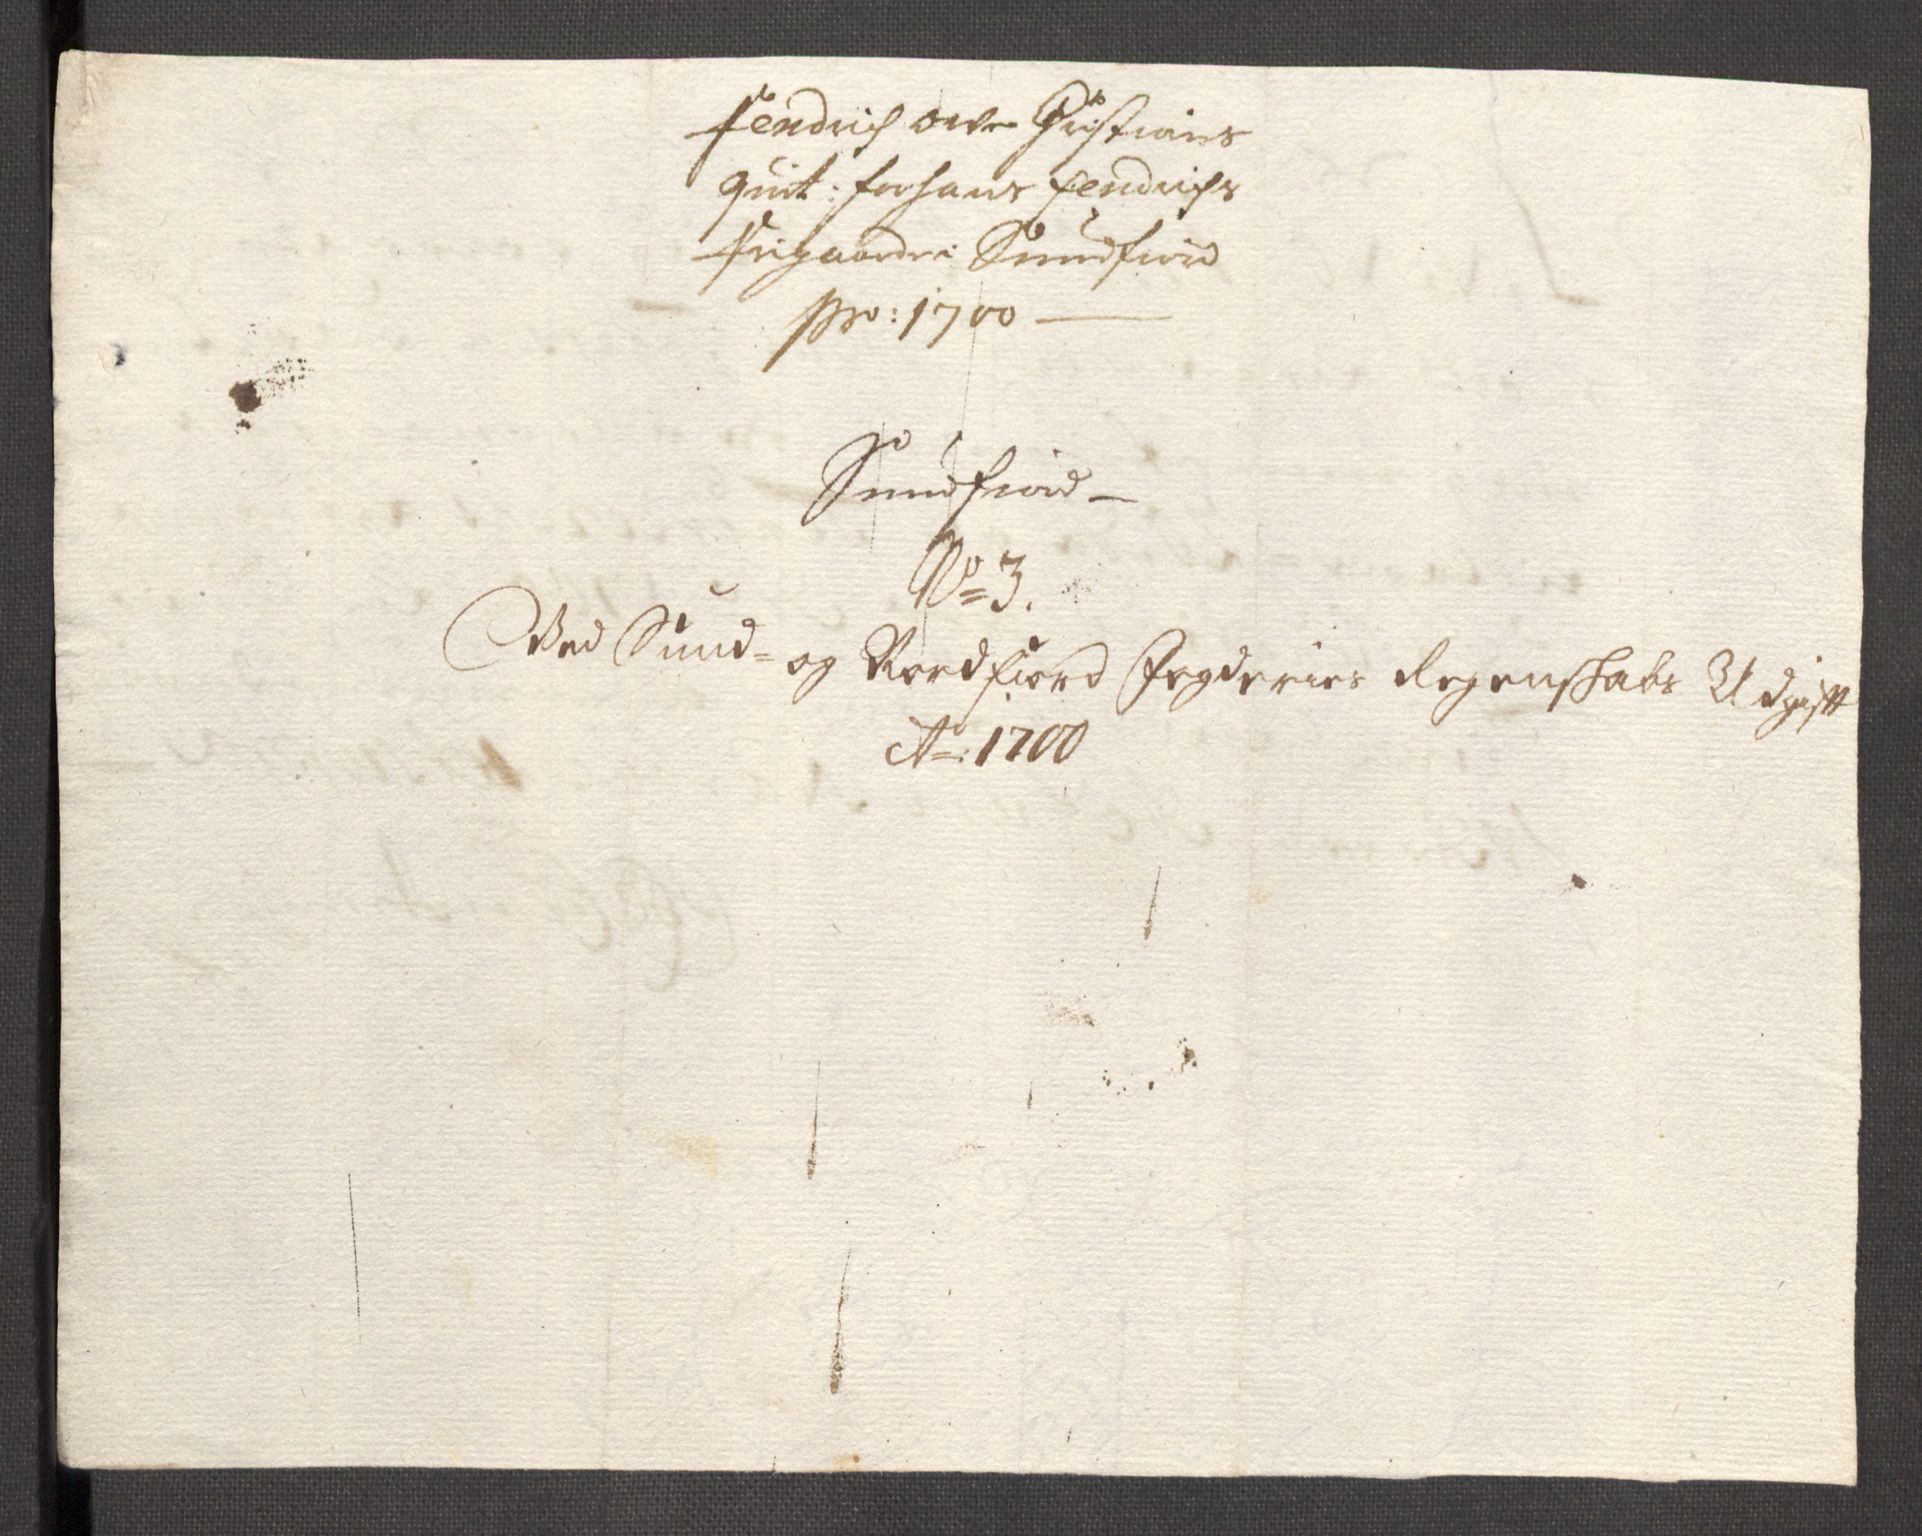 Fendrich Ove Christians
quit: for hans Fendrichs
Frigaard i Sundfiord
Pro: 1700
Sundfiord
No 3.
Ved Sund- og Nordfiord Fogderies Regenskabs Udgifft
Ao: 1700